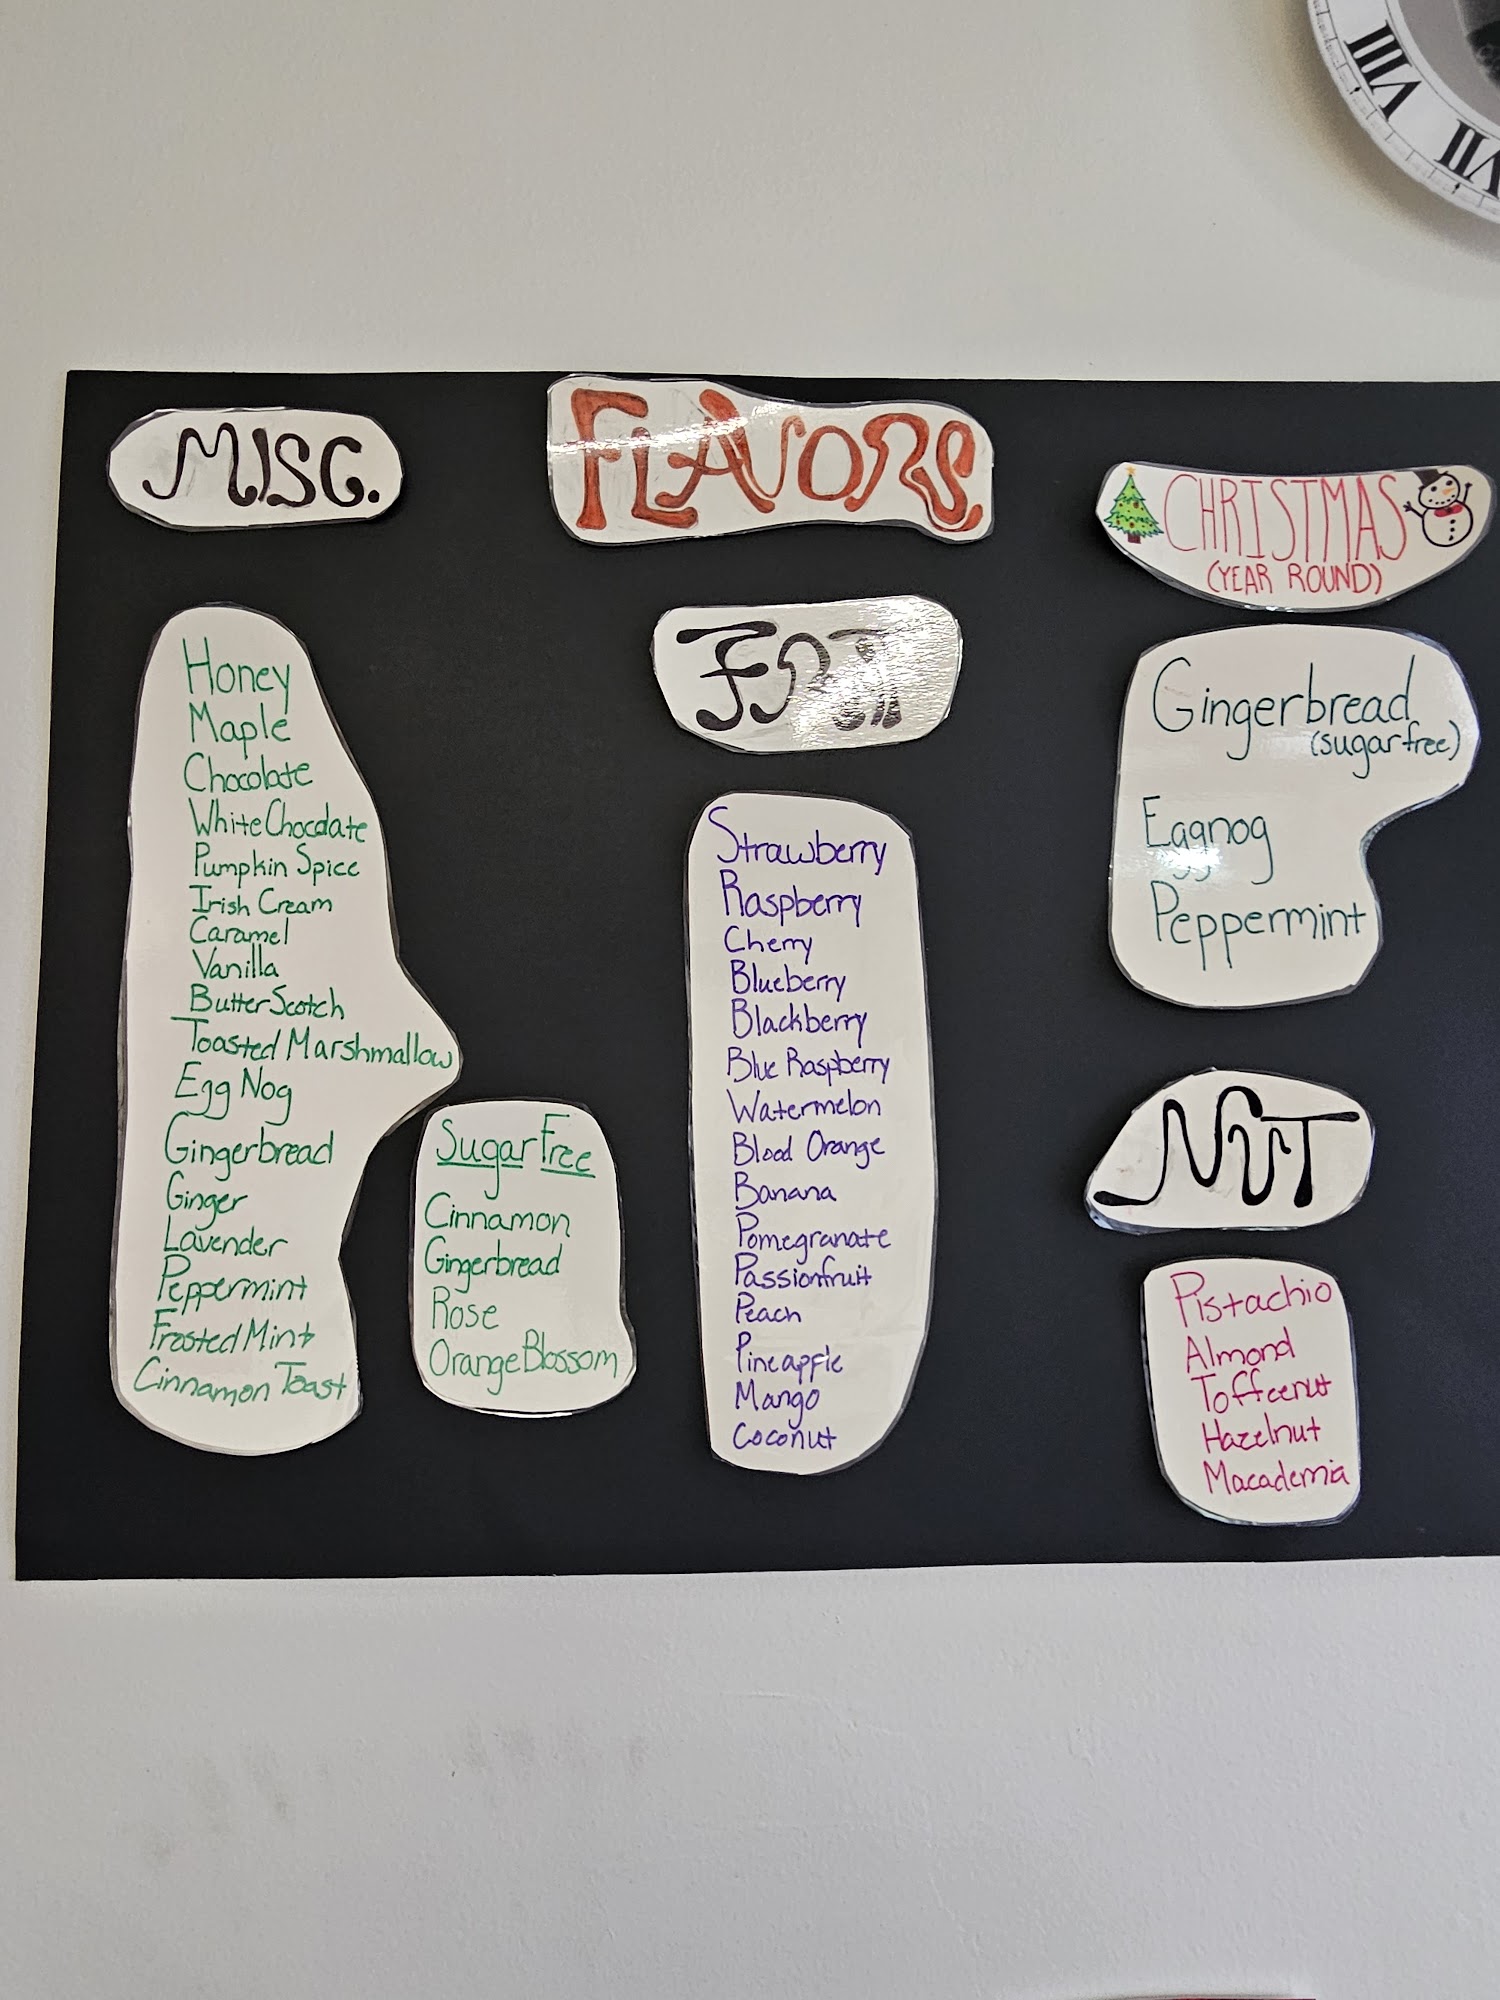 MISC.
FLAVORS
CHRISTMAS
(YEAR ROUND)
Honey
Maple
Chocolate
White Chocolate
Pumpkin Spice
Irish Cream
Caramel
Vanilla
ButterScotch
Toasted Marshmallow
Egg Nog
Gingerbread
Ginger
Lavender
Peppermint
Frosted Mint
Cinnamon Toast
Sugar Free
Cinnamon
Gingerbread
Rose
Orange Blossom
Strawberry
Raspberry
Cherry
Blueberry
Blackberry
Blue Raspberry
Watermelon
Blood Orange
Banana
Pomegranate
Passionfruit
Peach
Pineapple
Mango
Coconut
Gingerbread
(sugar free)
Eggnog
Peppermint
NUT
Pistachio
Almond
Toffeenut
Hazelnut
Macademia
VIII
VII